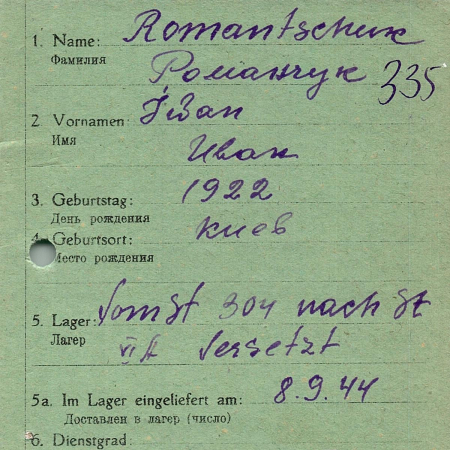 1. Name: Romantschuk
Фамилия Романчук 335
2 Vornamen: Iwan
Имя Иван
3. Geburtstag: 1922
День рождения
4. Geburtsort: Киев
Место рождения
5. Lager: Vom St 304 nach St
Лагерь VI versetzt
5a. Im Lager eingeliefert am: 8.9.44
Доставлен в лагерь (число)
6. Dienstgrad: